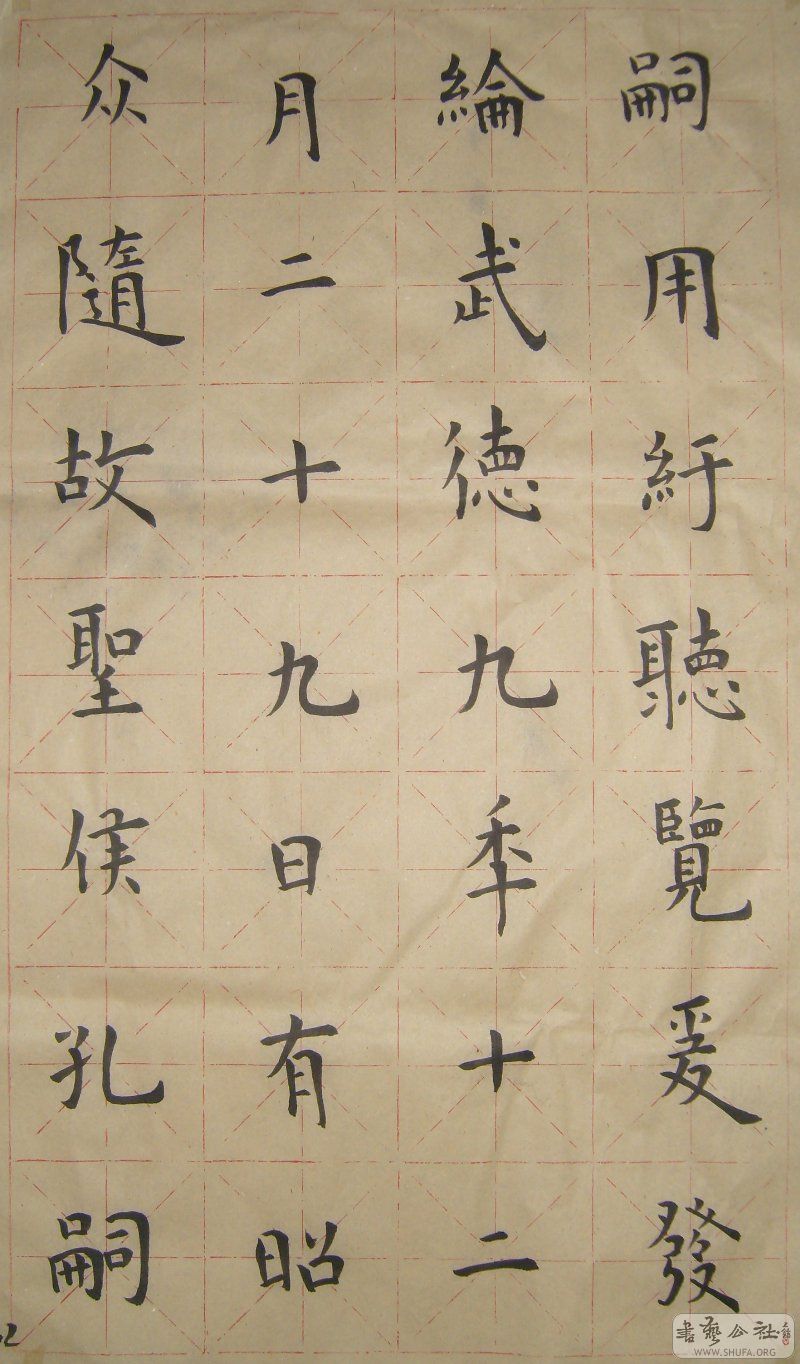 嗣用紆聽覽爰發
綸武德九秊十二
月二十九日有昭
众隨故聖侯孔嗣
書藝公社
WWW.SHUFA.ORG